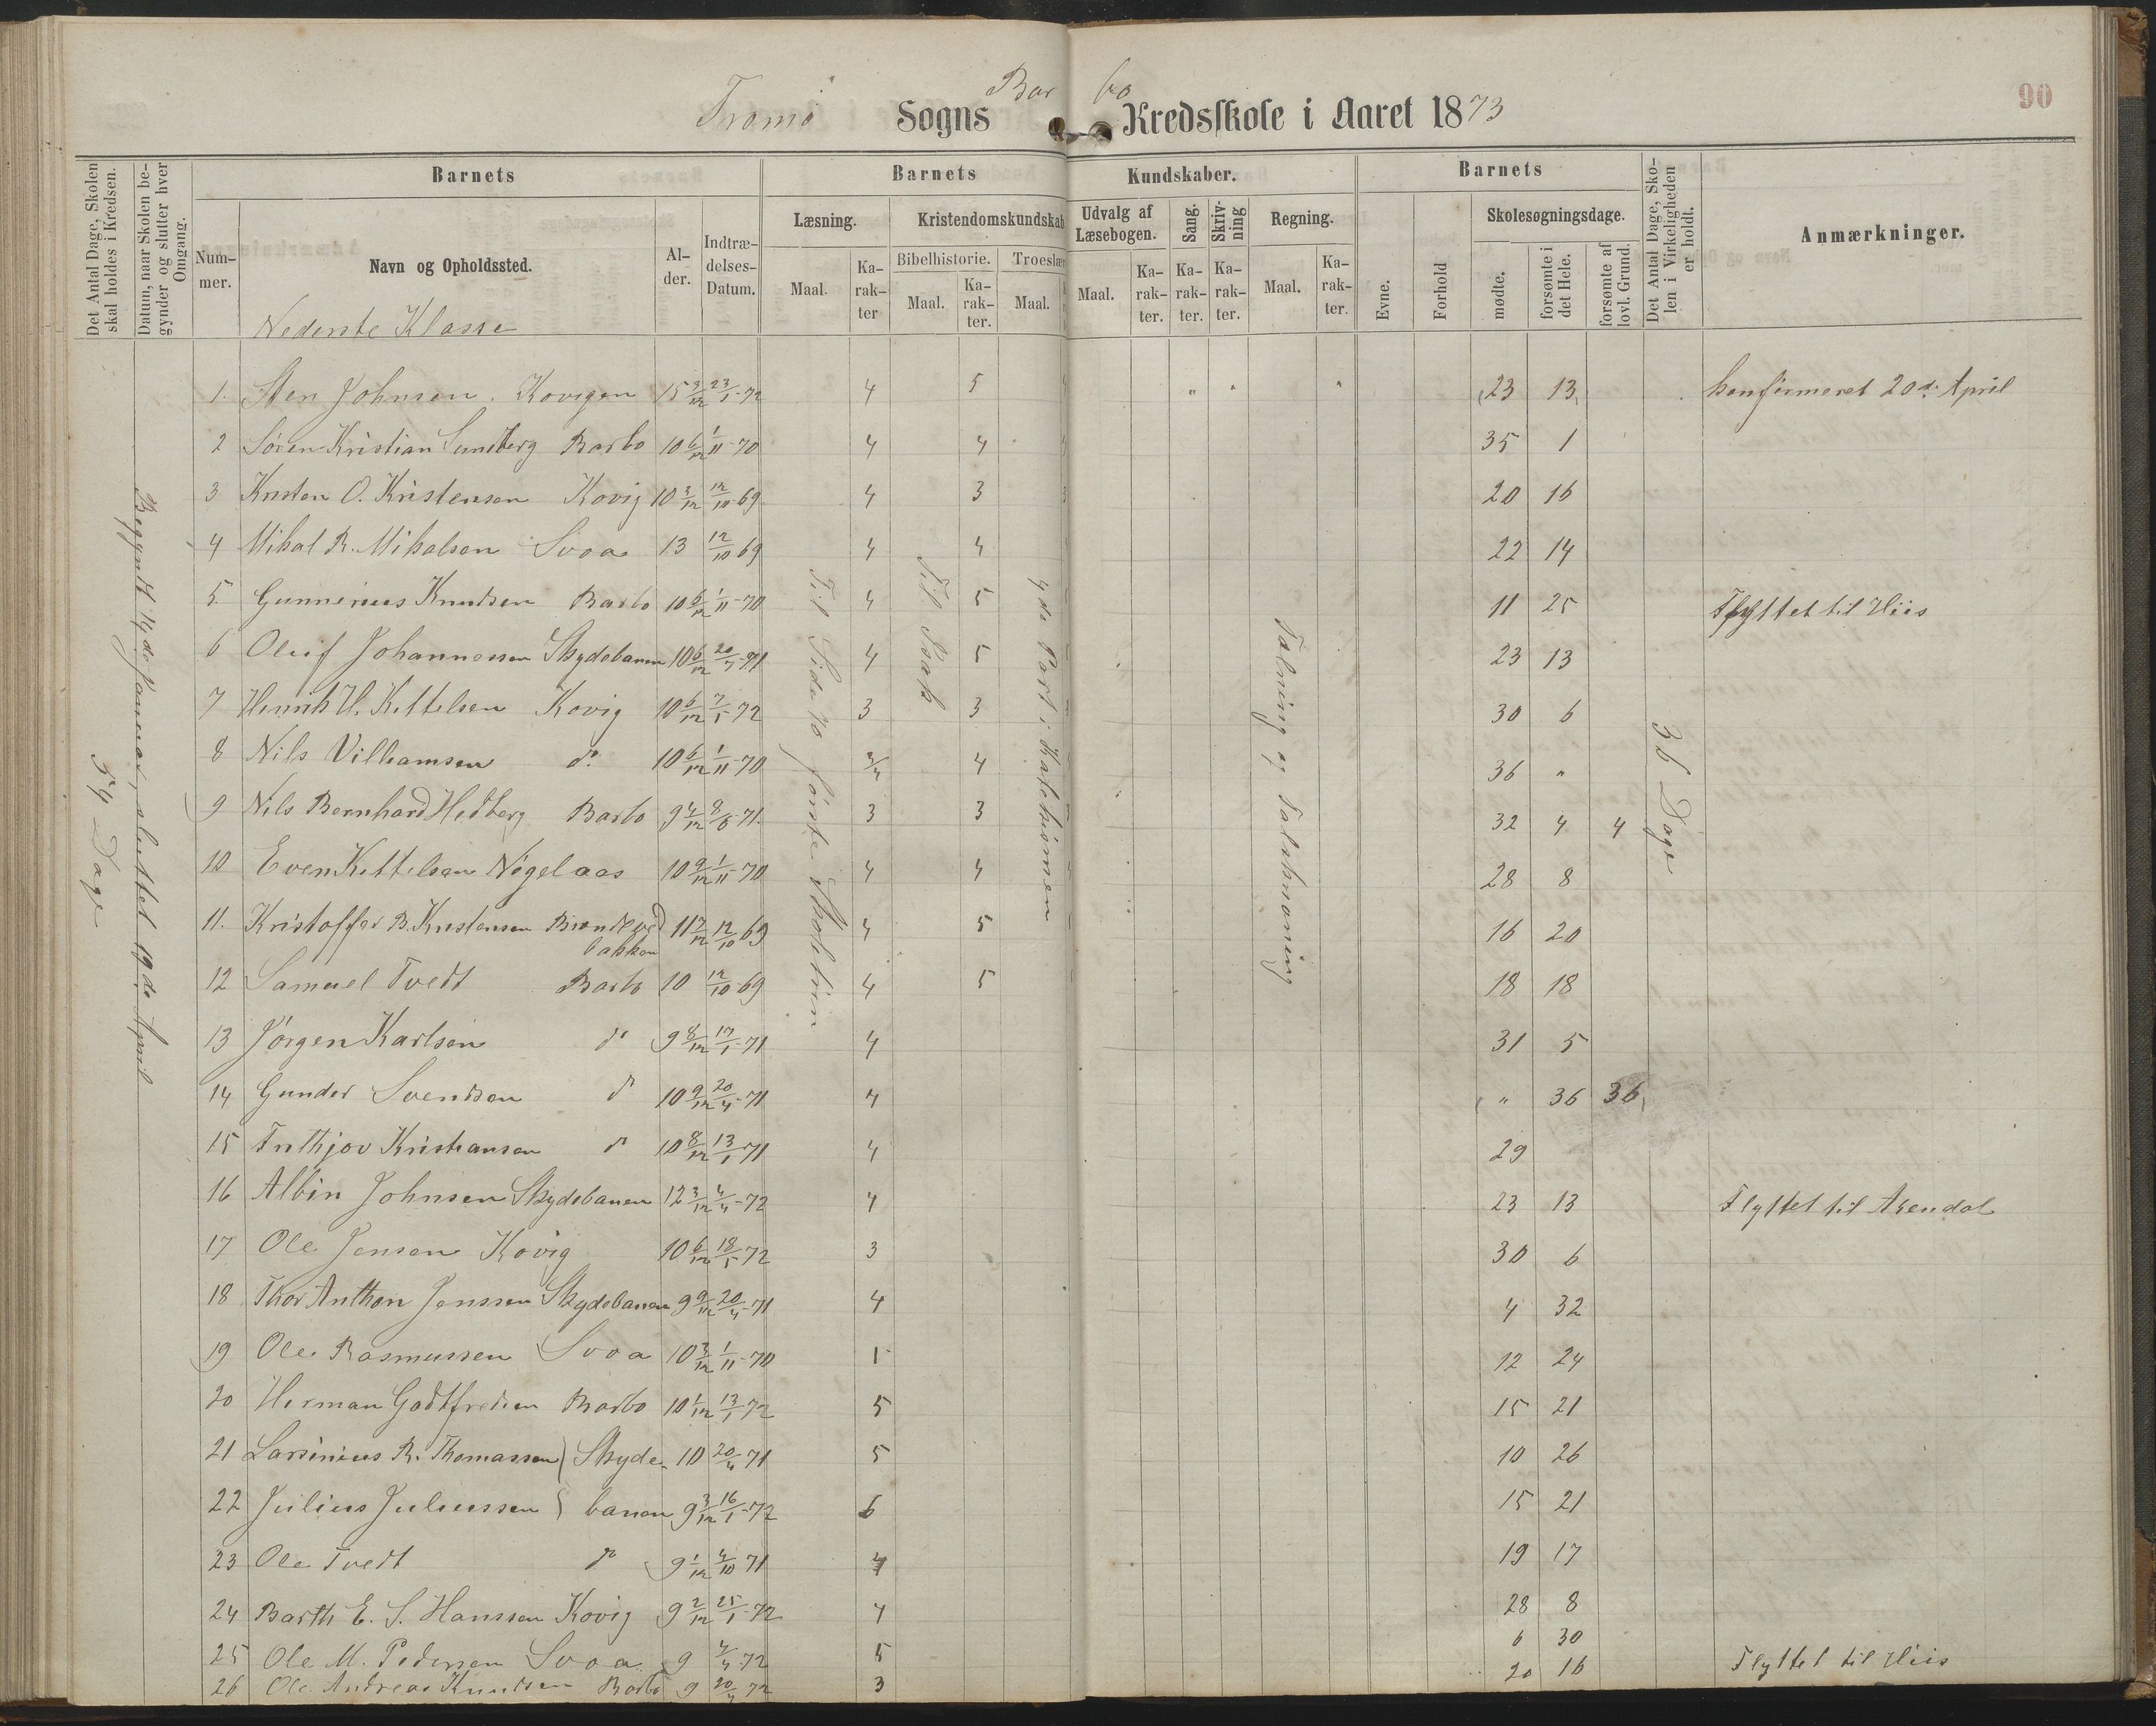 90
Tromö Sogns Barbo Kredsskole i Aaret 1873
Det Antal Dage, Skolen skal holdes i Kredsen.
Datum, naar Skolen begynder og slutter hver Omgang.
Barnets
Nummer.
Navn og Opholdssted.
Alder.
Indtrædelses-Datum.
Barnets Kundskaber.
Læsning.
Maal.
Karakter
Kristendomskundskab
Bibelhistorie.
Maal.
Karakter.
Troeslær
Maal.
Udvalg af Læsebogen.
Maal.
Karakter.
Sang.
Karakter.
Skrivning
Karakter.
Regning.
Maal.
Karakter.
Barnets
Evne.
Forhold
Skolesøgningsdage.
mødte.
forsømte i det Hele.
forsømte af lovl. Grund.
Det Antal Dage, Skolen i Virkeligheden er holdt.
Anmærkninger.
54 Dage
Begyndt 14de Januar, sluttet 19de April
Til Side 70 förste Skoletrin
Til Isak
4de Part i Katekismen
Talning og Talskrivning
36 Dage
Nederste Klasse
1. Sten Johnsen. Kovigen 15 3/12 23/1-72 4 5 " " " 23 13 konfirmeret 20de April
2 Sören Kristian Sundberg Barbo 10 6/12 1/11-70 4 4 35 1
3 Kristen O. Kristensen Kovig 10 3/12 12/10-69 4 3 20 16
4 Mikal R. Mikalsen Svoa 13 12/10 69 4 4 22 14
5. Gunnerius Knudsen Barbo 10 6/12 1/11-70 4 5 11 25 Flyttet til Hiis
6 Oluf Johannessen Skydebanen 10 6/12 20/4-71 4 5 23 13
7 Henrik H. Kittelsen Kovig 10 6/12 7/5-72 3 3 30 6
8 Nils Villiamsen do 10 6/12 1/11-70 3/4 4 36 "
9 Nils Bernhard Hedberg Barbo 9 4/12 8/6-71. 3 3 32 4 4
10 Even Kittelsen Nögelaas 10 9/12 1/11-70 4 4 28 8
11. Kristoffer B. Kristensen 12/10 69 4 5 16 20
12 Samuel Tvedt Barbo 10 12/10-69 4 5 18 18
13 Jörgen Karlsen do 9 8/12 17/1-71 4 31 5
14 Gunder Svendsen do 10 9/12 20/4-71 4 " 36 36
15 Frithjov Kristiansen do 10 8/12 13/1-71 4 29
16 Albin Johnsen Skydebanen 12 3/12 4/4-72 4 23 13 Flyttet til Arendal
17 Ole Jensen Kovig 10 6/12 18/5-72 3 30 6
18 Thor Anthon Jenssen Skydebanen 9 9/12 20/4-71 4 4 32
19 Ole Rasmussen Svoa 10 3/12 1/11-70 1 12 24
20 Herman Godtfredsen Barbo 10 1/12 13/1-72 5 15 21
21 Larsinius R. Thomassen Skyde- 10 20/4 71 5 10 26
22 Julius Juliussen banen 9 3/12 16/1-72 6 15 21
23 Ole Tvedt do 9 1/12 4/10 71 4 19 17
24 Barth E. S. Hanssen Kovig 9 2/12 25/1-72 4 28 8
25 Ole M. Pedersen Svoa 9 4/4-72 5 6 30
26 Ole Andreas Knudsen Barbo 9 20/4 72 3 20 16 Flyttet til Hiis